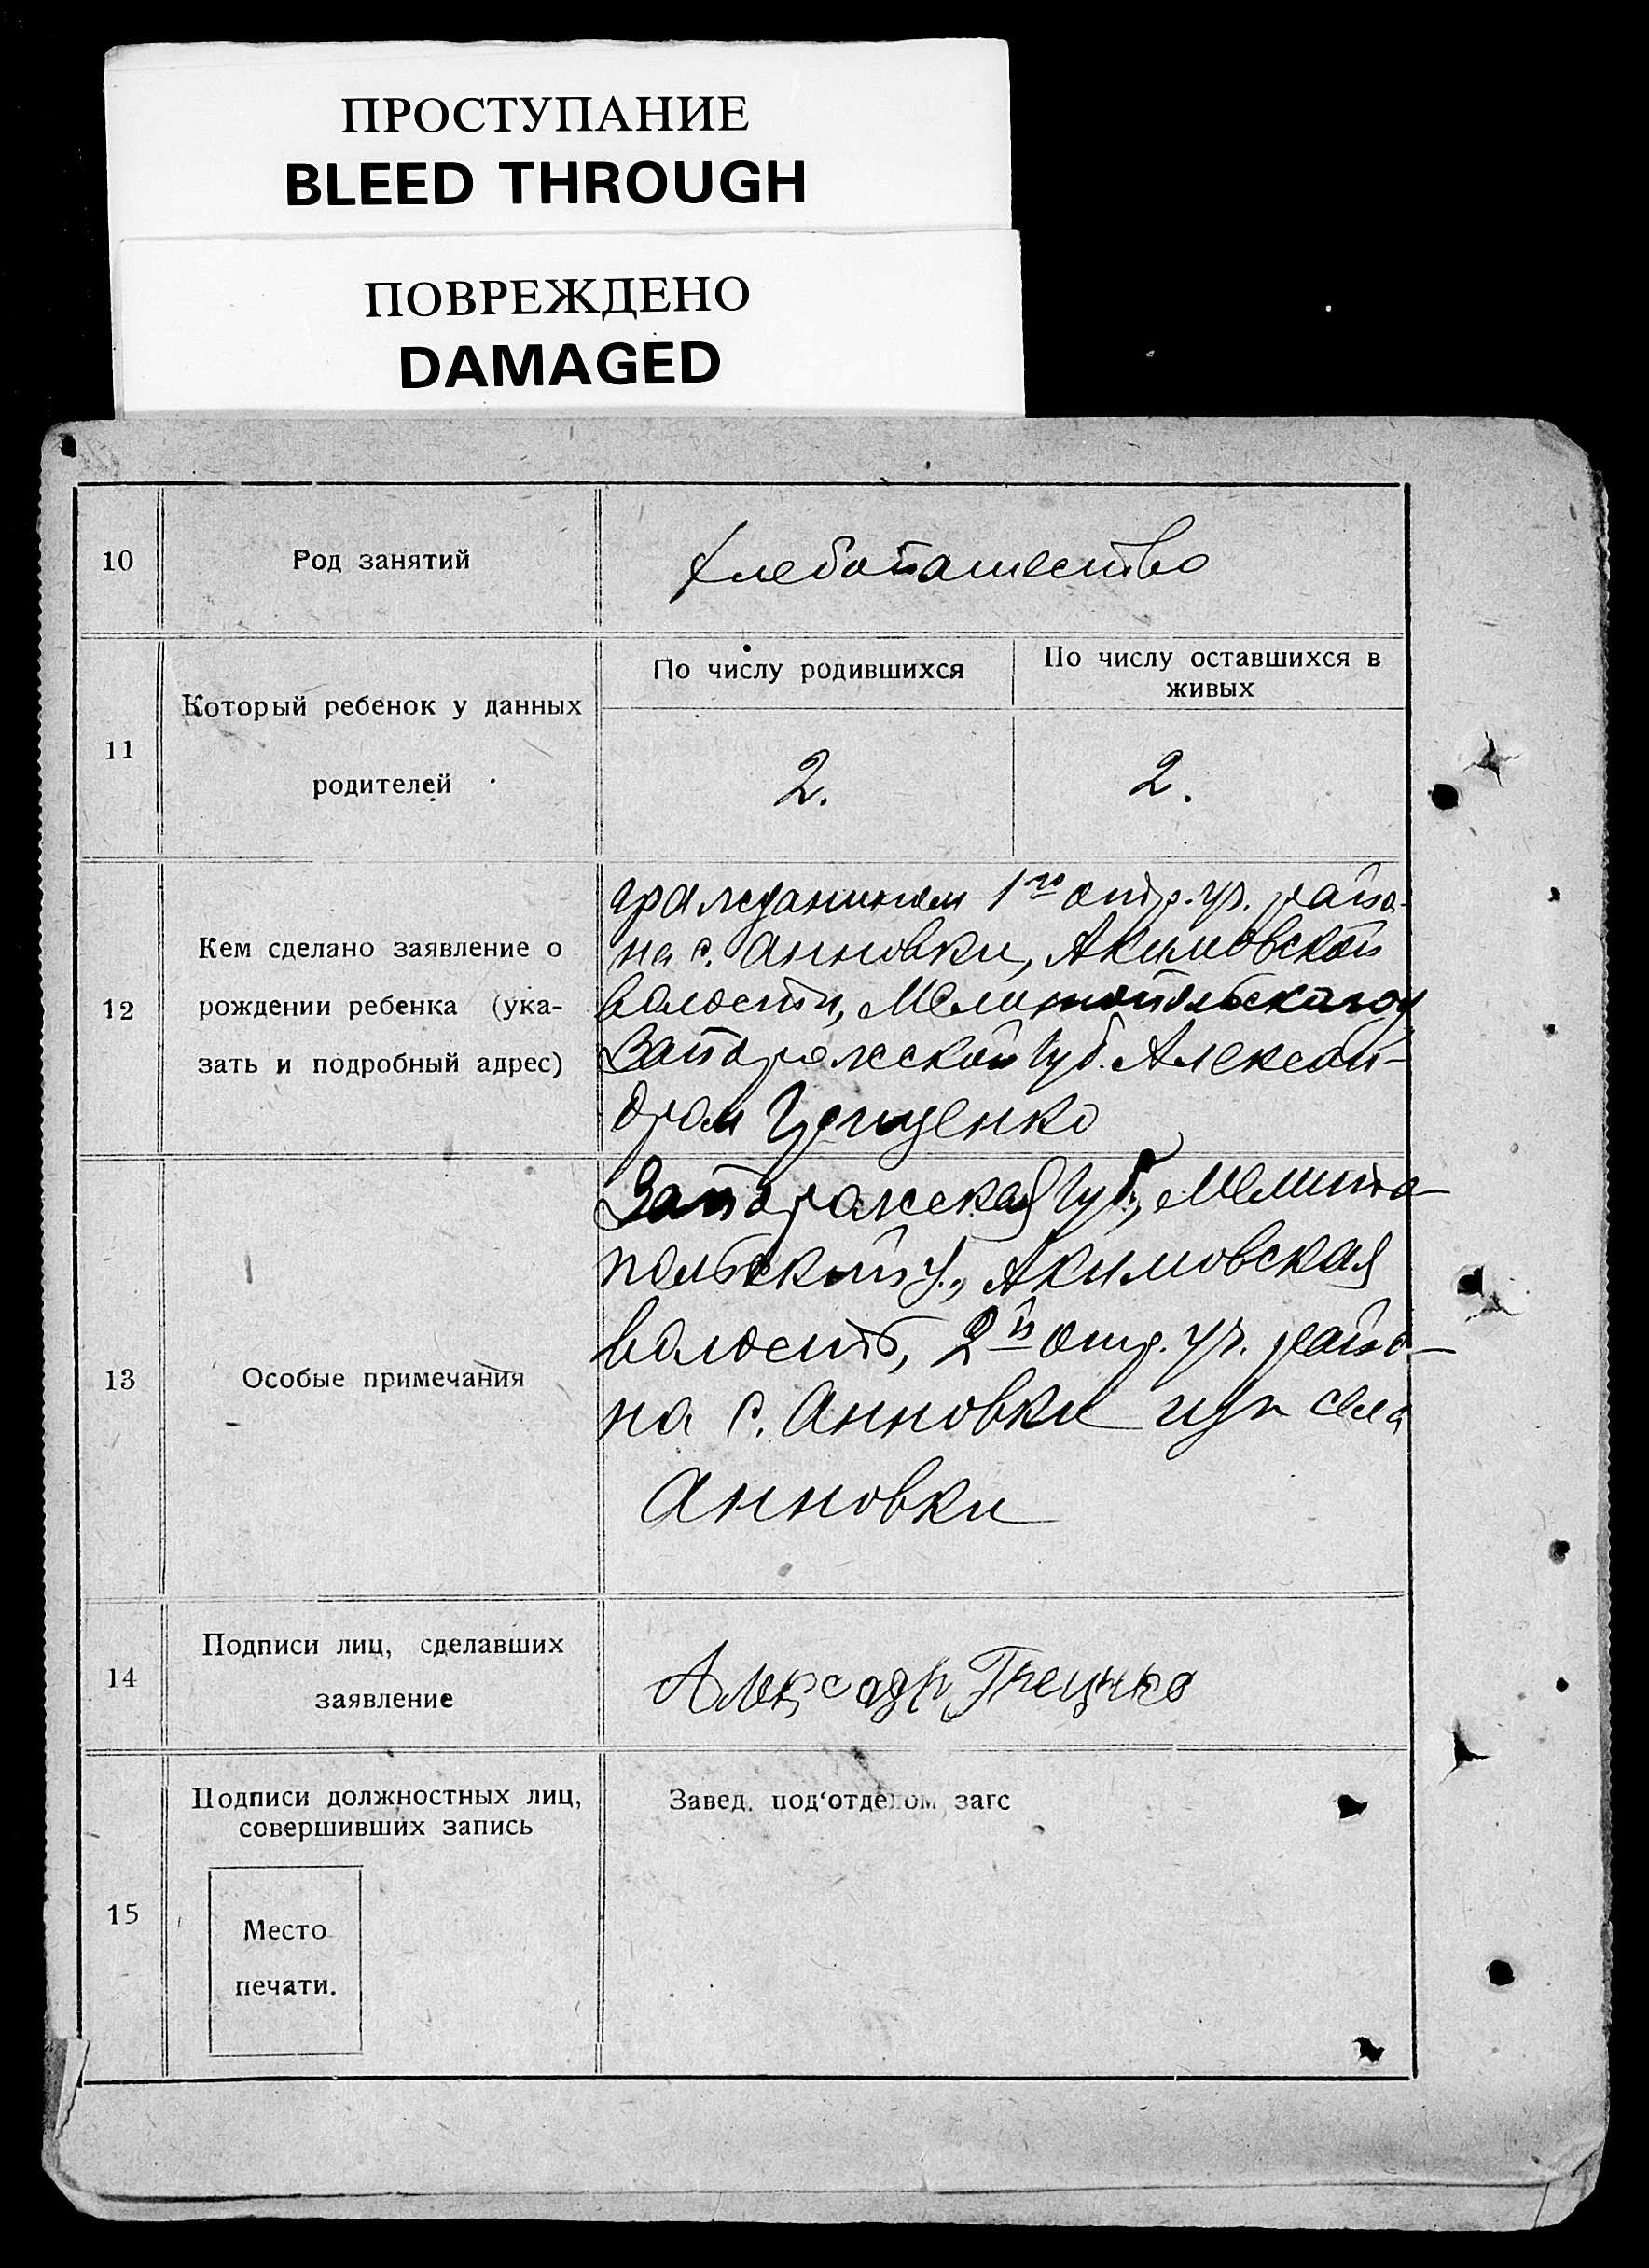 ПРОСТУПАНИЕ
BLEED THROUGH
ПОВРЕЖДЕНО
DAMAGED
10
Род занятий
Хлебопашество
11
Который ребенок у данных
родителей
По числу родившихся
По числу оставшихся в
живых
2.
2.
12
Кем сделано заявление о
рождении ребенка (ука-
зать и подробный адрес)
гражданином 1го отд. уч. райо-
на с. Анновки, Акимовской
волости, Мелитопольского у
Запорожской губ. Алексан-
дром
13
Особые примечания
Запорожская губ., Мелито-
польский у., Акимовская
волость, 2й отд. уч. райо-
на с. Анновки села
Анновки
14
Подписи лиц, сделавших
заявление
15
Подписи должностных лиц,
совершивших запись
Место
печати.
Завед. под'отделом загс